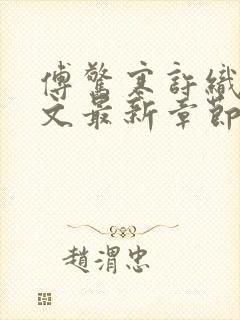 傅驚寒許織
文最新章節
趙渭忠